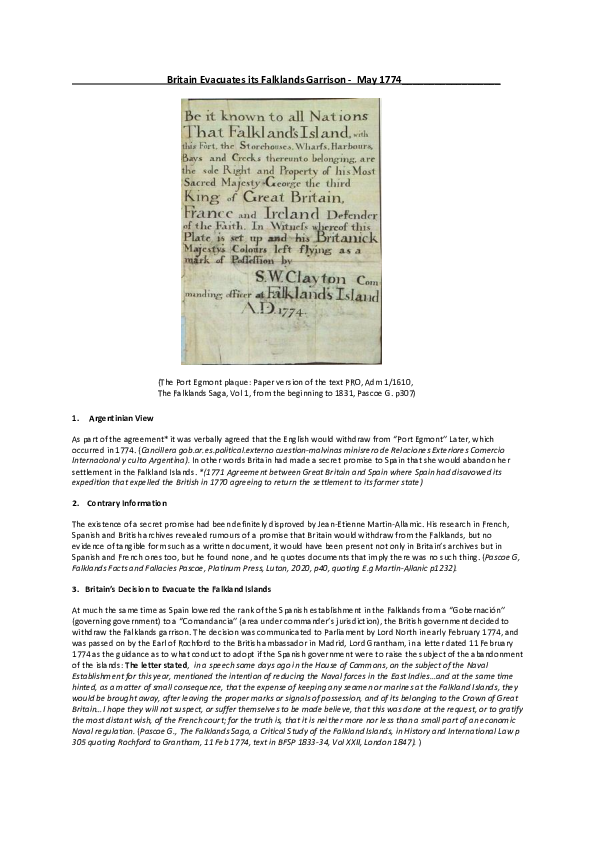 Britain Evacuates its Falklands Garrison - May 1774
Be it known to all Nations
That Falkland's Island, with
this Fort, the Storehouses, Wharfs, Harbours,
Bays and Creeks thereunto belonging, are
the sole Right and Property of his Most
Sacred Majesty George the third
King of Great Britain,
France and Ireland Defender
of the Faith. In Witness whereof this
Plate is set up and his Britanick
Majestys Colours left flying as a
mark of Possession by
S.W. Clayton Com
manding officer at Falkland's Island
A.D. 1774.
(The Port Egmont plaque: Paper version of the text PRO, Adm 1/1610,
The Falklands Saga, Vol 1, from the beginning to 1831, Pascoe G. p307)
1. Argentinian View
As part of the agreement* it was verbally agreed that the English would withdraw from "Port Egmont" Later, which
occurred in 1774. (Cancillera gob.ar.es.political.externo cuestion-malvinas minisrero de Relaciones Exteriores Comercio
Internacional y culto Argentina). In other words Britain had made a secret promise to Spain that she would abandon her
settlement in the Falkland Islands. *(1771 Agreement between Great Britain and Spain where Spain had disavowed its
expedition that expelled the British in 1770 agreeing to return the settlement to its former state)
2. Contrary Information
The existence of a secret promise had been definitely disproved by Jean-Etienne Martin-Allamic. His research in French,
Spanish and British archives revealed rumours of a promise that Britain would withdraw from the Falklands, but no
evidence of tangible form such as a written document, it would have been present not only in Britain's archives but in
Spanish and French ones too, but he found none, and he quotes documents that imply there was no such thing. (Pascoe G,
Falklands Facts and Fallacies Pascoe, Platinum Press, Luton, 2020, p40, quoting E.g Martin-Allanic p1232).
3. Britain's Decision to Evacuate the Falkland Islands
At much the same time as Spain lowered the rank of the Spanish establishment in the Falklands from a "Gobernación"
(governing government) to a "Comandancia" (area under commander's jurisdiction), the British government decided to
withdraw the Falklands garrison. The decision was communicated to Parliament by Lord North in early February 1774, and
was passed on by the Earl of Rochford to the British ambassador in Madrid, Lord Grantham, in a letter dated 11 February
1774 as the guidance as to what conduct to adopt if the Spanish government were to raise the subject of the abandonment
of the islands: The letter stated, in a speech some days ago in the House of Commons, on the subject of the Naval
Establishment for this year, mentioned the intention of reducing the Naval forces in the East Indies...and at the same time
hinted, as a matter of small consequence, that the expense of keeping any seamen or marines at the Falkland Islands, they
would be brought away, after leaving the proper marks or signals of possession, and of its belonging to the Crown of Great
Britain...I hope they will not suspect, or suffer themselves to be made believe, that this was done at the request, or to gratify
the most distant wish, of the French court; for the truth is, that it is neither more nor less than a small part of an economic
Naval regulation. (Pascoe G., The Falklands Saga, a Critical Study of the Falkland Islands, in History and International Law p
305 quoting Rochford to Grantham, 11 Feb 1774, text in BFSP 1833-34, Vol XXII, London 1847). )